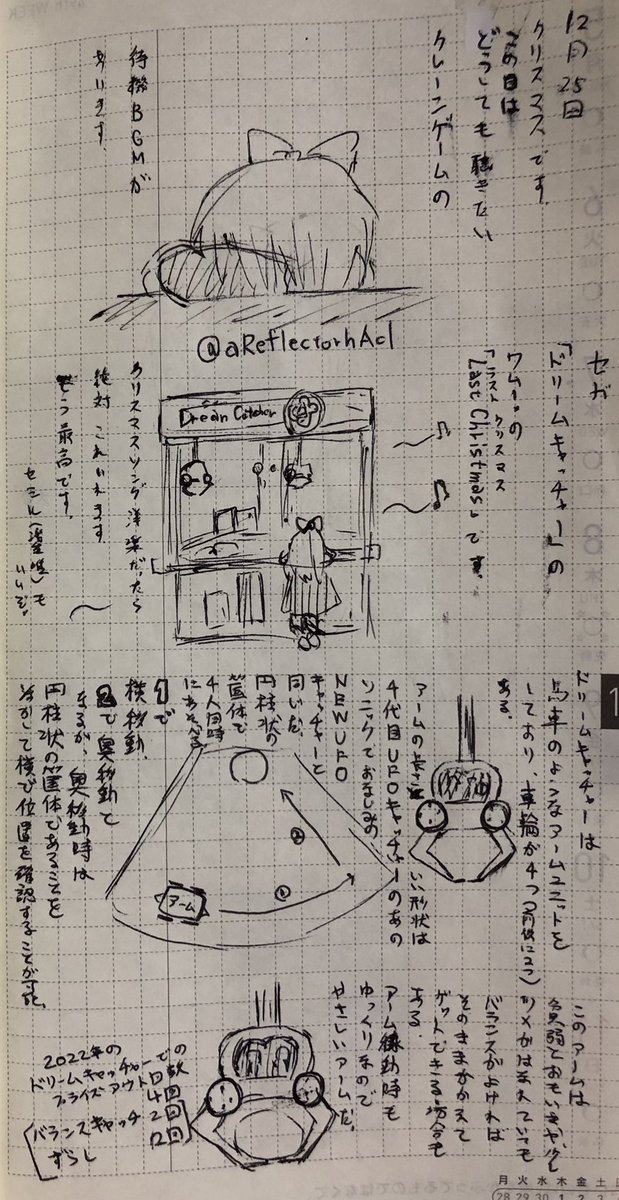 12月25日
クリスマスです。
この日は
どうしても聴きたい
クレーンゲームの
待機BGMが
あります。
@aReflectorhAcl
セガ
「ドリームキャッチャー」の
ワム!の
「ラスト クリスマス
Last Christmas」です。
Dream Catcher
クリスマスソング洋楽だったら
絶対これいれます。
もう最高です。
いいぞ。
ドリームキャッチャーは
馬車のようなアームユニットを
しており、車輪が4つ(前後に2つ)
ある。
アームの長さと
いい形状は
4代目UFOキャッチャーのあの
ソニックでおなじみの、
NEW UFO
キャッチャーと
同いだ。
円柱状の
筐体で
4人同時
にあそべる
1で
横移動、
2で奥移動と
なるが、奥移動時は
円柱状の筐体であることを
活かして横で位置を確認することが可能。
アーム
①
②
このアームは
貧弱とおもいきや、少し
ツメがはまれていても
バランスがよければ
そのままかかえて
ゲットできる場合も
ある。
アーム稼動時も
ゆっくりなので
やさしいアームだ。
2022年の
ドリームキャッチャーでの
プライズアウト回数
4回
バランスキャッチ 2回
ずらし 2回
月火水木金土
28 29 30 1 2 3